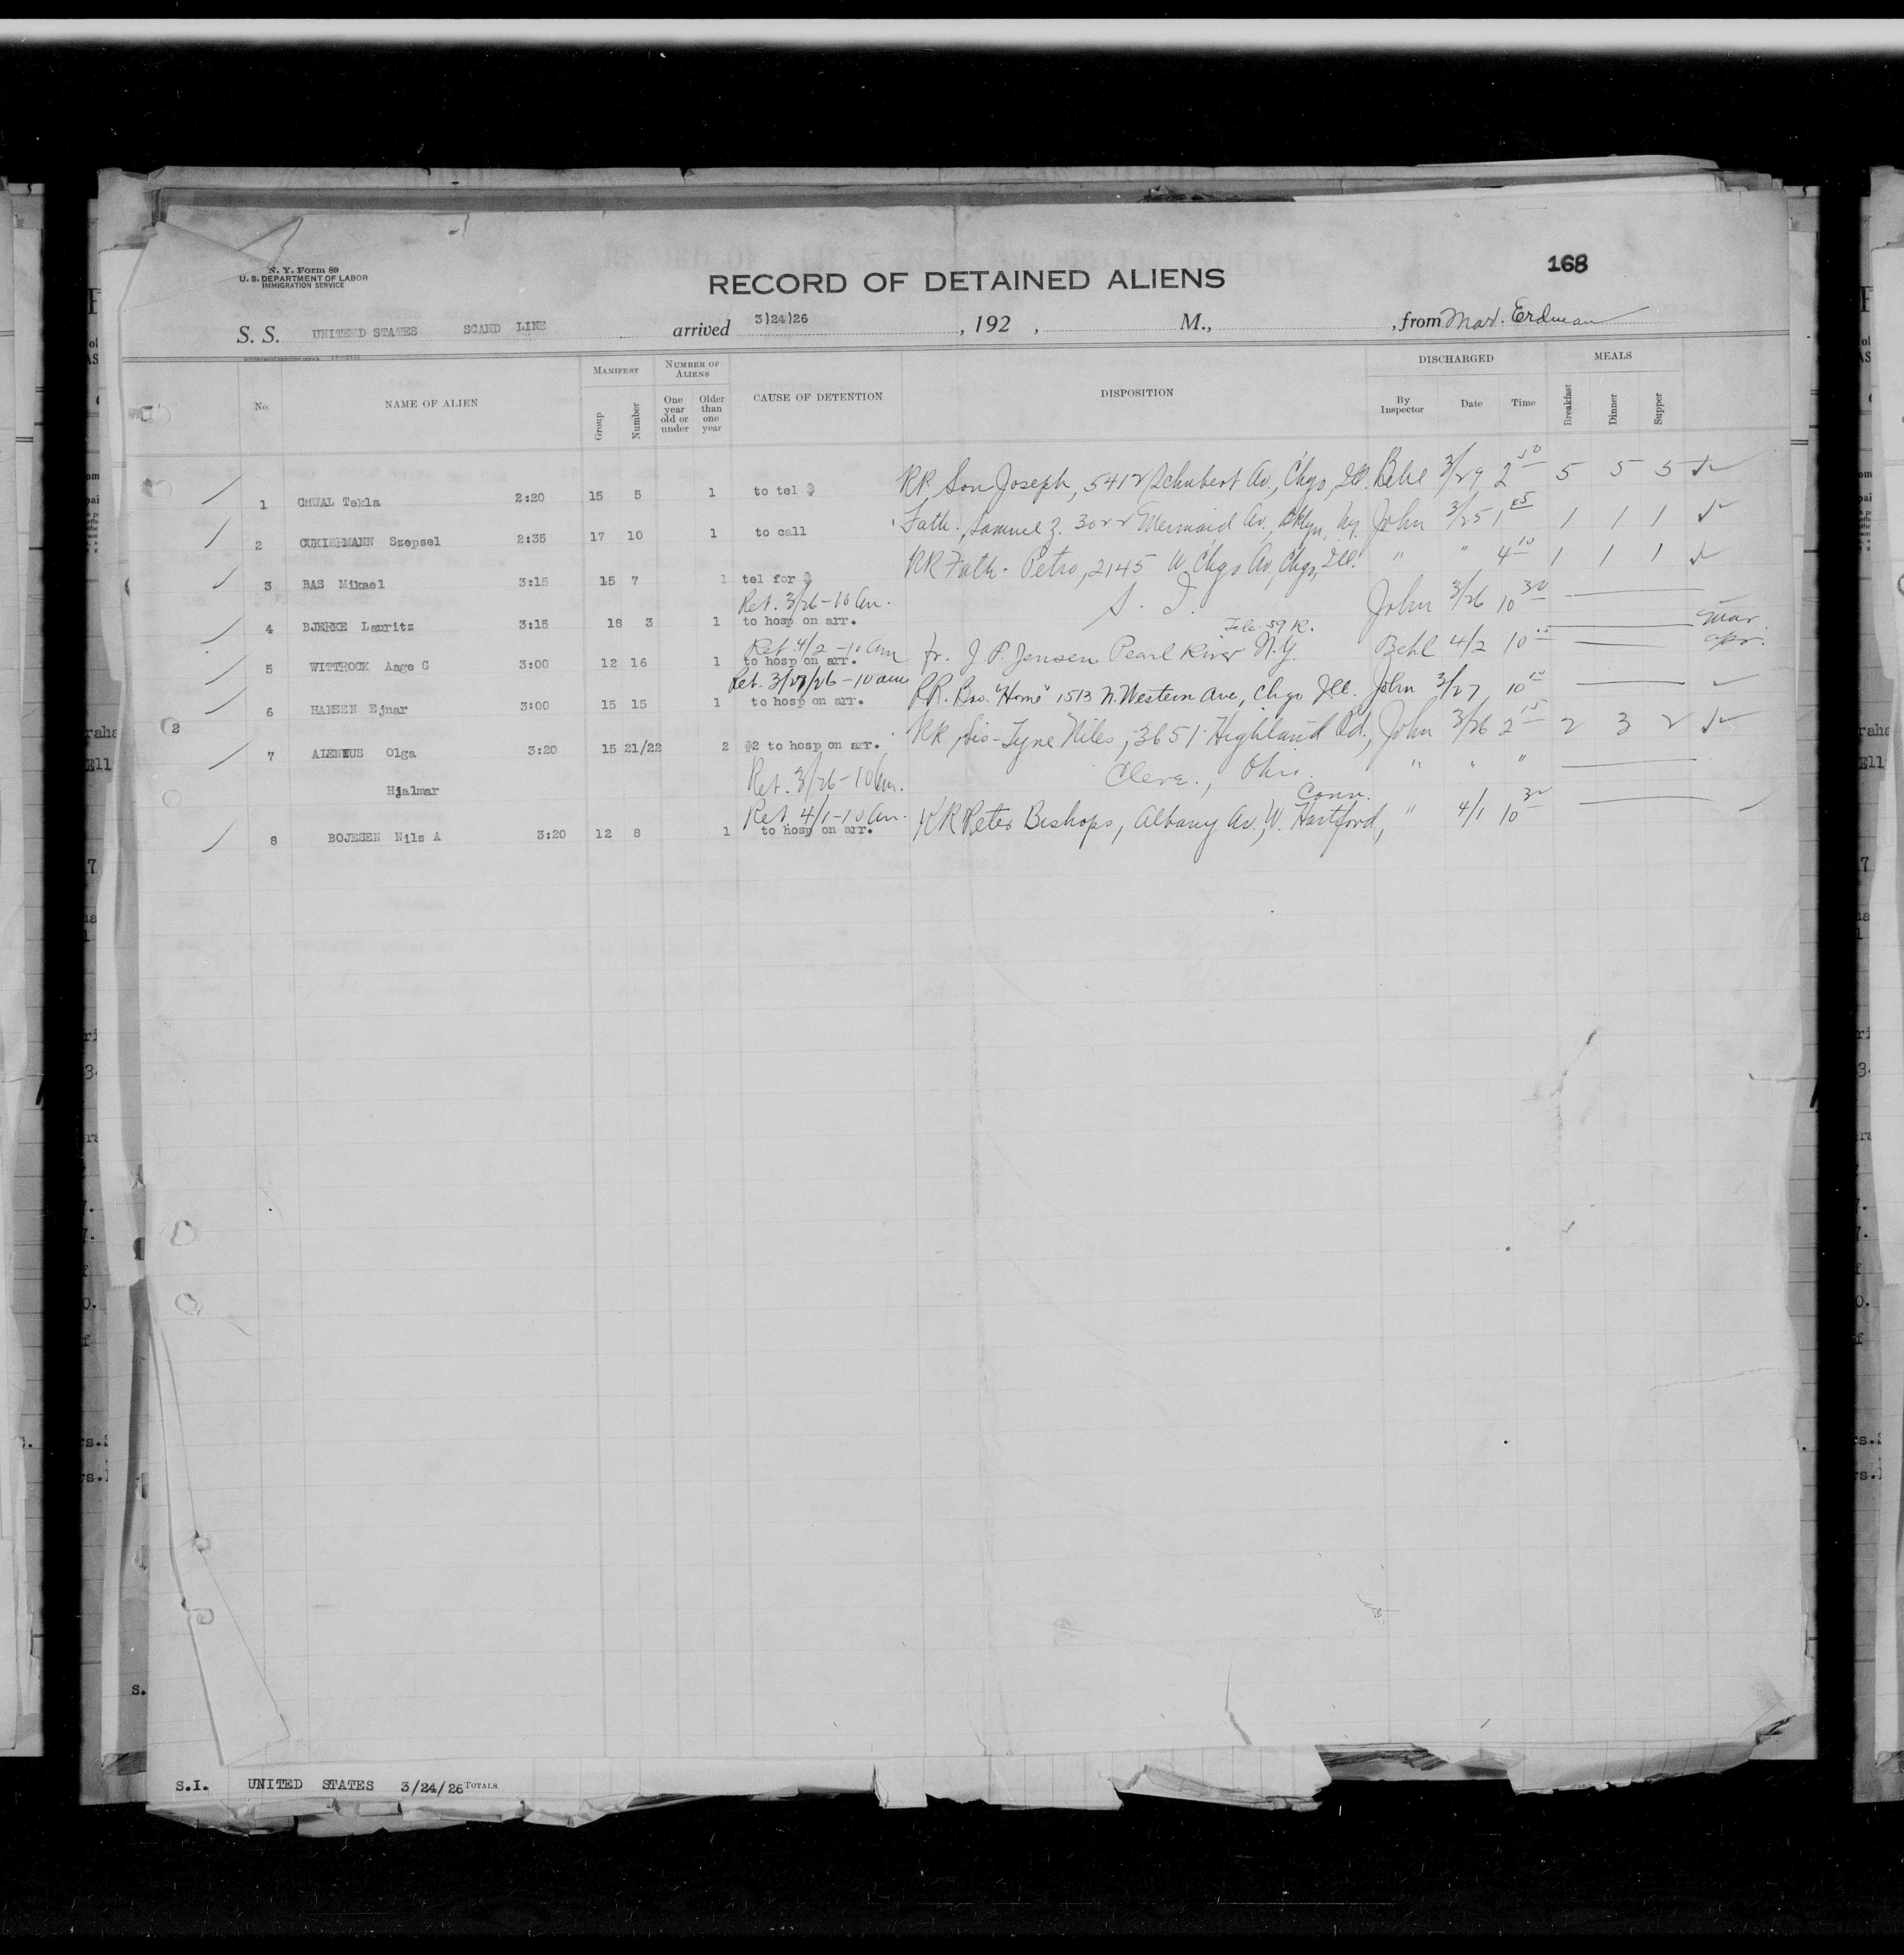 N. Y. Form 89
U. S. DEPARTMENT OF LABOR
IMMIGRATION SERVICE
RECORD OF DETAINED ALIENS
168
S. S. UNITED STATES SCAND LINE arrived 3/24/26, 192 , M., , from Mad. Erdman
No. NAME OF ALIEN MANIFEST Group Number NUMBER OF ALIENS One year old or under Older than one year CAUSE OF DETENTION DISPOSITION DISCHARGED By Inspector Date Time MEALS Breakfast Dinner Supper
1 CHWAL Tekla 2:20 15 5 1 to tel $ RR Son Joseph, 5412 Schubert Av., Chgo, Ill. Behl 3/29 2 5 5 5
2 CUKIERMANN Szepsel 2:35 17 10 1 to call Fath. Samuel Z. 3022 Mermaid Av., Bklyn, Ny. John 3/25 1 1 1 1
3 BAS Mikael 3:15 15 7 1 tel for $ RR Fath. Petro, 2145 W Chgo Av, Chgo, Ill. " " 4 10 1 1 1
Ret. 3/26 - 10 am.
4 BJERKE Lauritz 3:15 18 3 1 to hosp on arr. S. I. John 3/26 10 30
Ret. 4/2 - 10 am Tele. 59 R. Mar.
5 WITTROCK Aage C 3:00 12 16 1 to hosp on arr. fr. J. P. Jensen Pearl River N.Y. Behl 4/2 10 Apr.
Ret. 3/27/26 - 10 am
6 HANSEN Ejnar 3:00 15 15 1 to hosp on arr. RR. Bro. "Home" 1513 N. Western Ave, Chgo Ill. John 3/27 10
7 Olga 3:20 15 21/22 2 #2 to hosp on arr. RR Sis- Niles, 3651 Highland Rd., John 3/26 2 15 2 3 2
Hjalmar Ret. 3/26 - 10 am. Cleve., Ohio. " " "
Ret. 4/1 - 10 am. Conn.
8 BOJESEN Nils A 3:20 12 8 1 to hosp on arr. RR Peter Bishops, Albany Av., W. Hartford, " 4/1 10 30
S.I. UNITED STATES 3/24/26 TOTALS